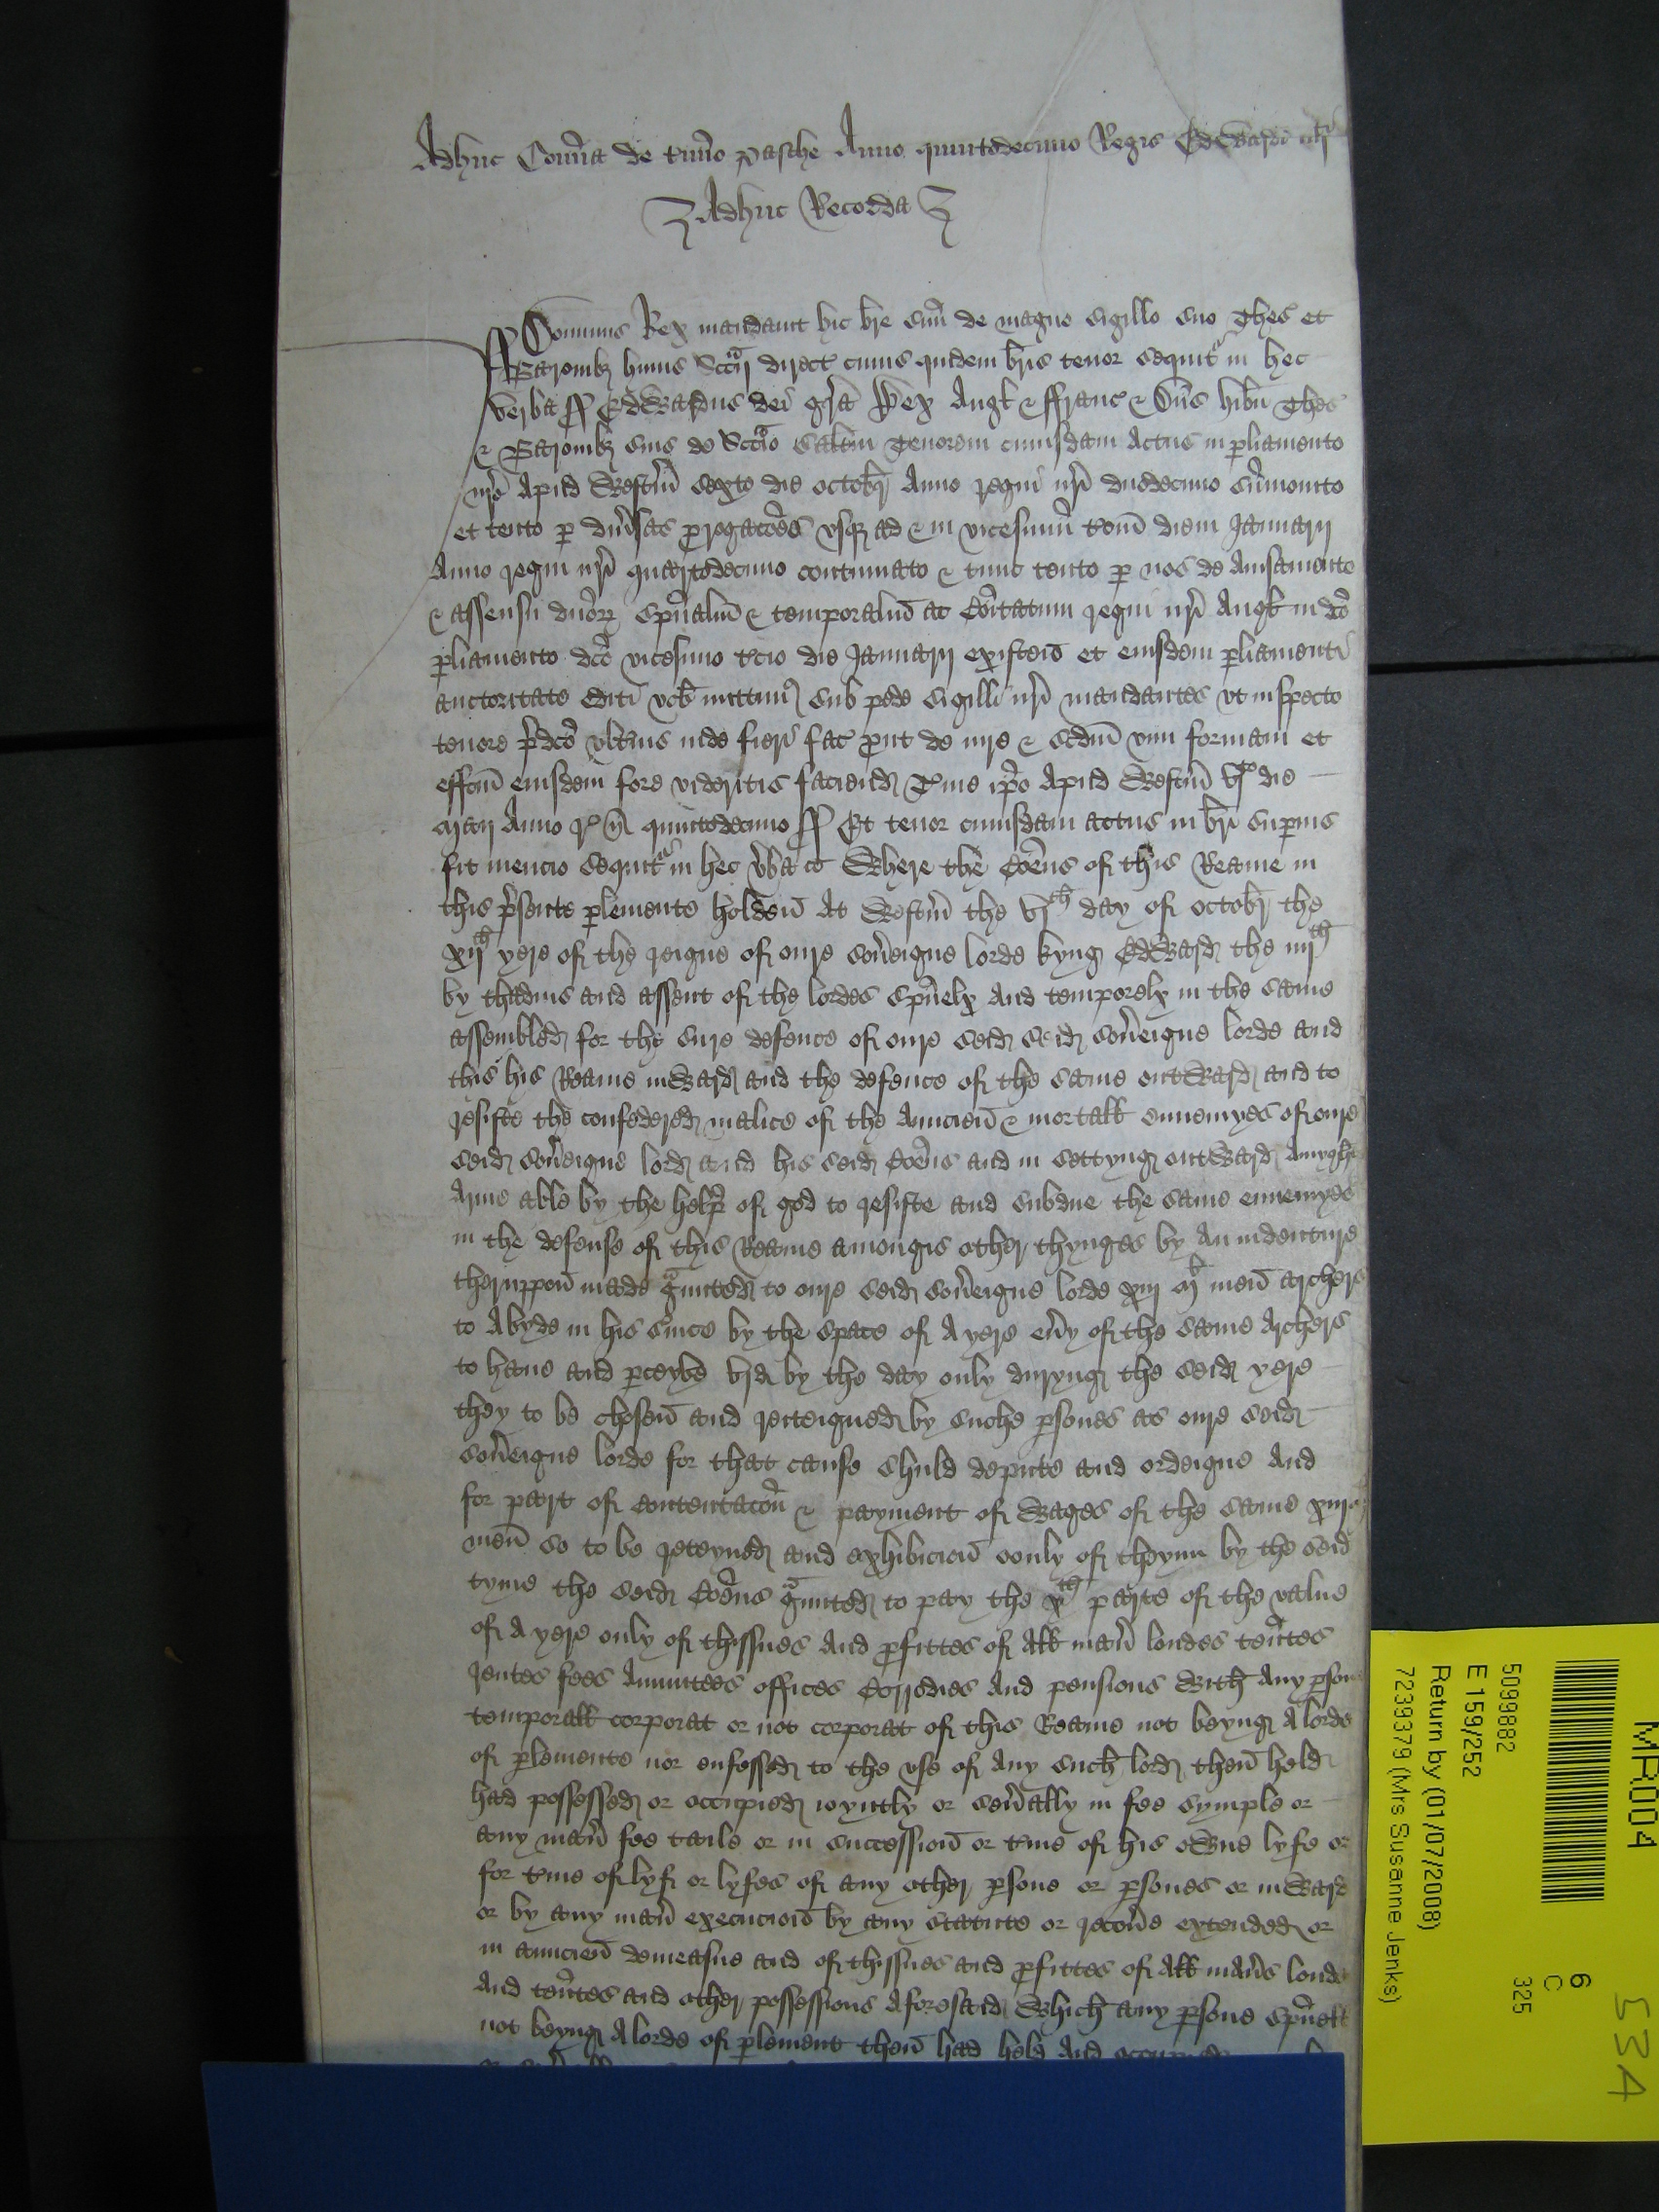 Adhuc Com̃ia de t̃mino Pasche Anno quintodecimo Regis Edwardi iiijti
Adhuc Recorda
Dominus Rex mandauit hic bre suũ de magno sigillo suo Thes et
Baronibȝ huius Sccarij direct cuius quidem bris tenor sequit̃ in hec
verba Edwardus dei gra Rex Angl & ffranc & Dñs hibñ Thes
& Baronibȝ suis de Sccaio saltm Tenorem cuiusdam Actus in pliamento
nr̃o Apud Westm̃ sexto die Octobr̃ Anno regni nr̃i duodecimo sum̃onito
et tento p diũsas prorogac̃oes vsqȝ ad & in vicesimũ t̃ciũ diem Januarij
Anno regni nr̃i quartodecimo continuato & tunc tento p nos de Auisamento
& assensu dñorȝ sp̃ualiũ & temporaliũ ac Co͠itatum regni nr̃i Angl in dc̃o
pliamento dc̃o vicesimo t̃cio die Januarij existeñ et eiusdem pliamenti
auctoritate editi vob mittim9 sub pede sigilli nr̃i mandantes vt inspecto
tenore p̃dc̃o vlt̃ius inde fieri fac̃ put de iure & scdm̃ vim formam et
effc̃m eiusdem fore videritis faciend T me ip̃o Apud Westm̃ vjto die
Maij Anno r̃ ñ quintodecimo Et tenor cuiusdam actus in br̃i supius
fit mencio sequit̃ in hec ṽba ct Where the Co͠ens of this Reame in
this p̃sente plemente holdeñ At Westm̃ the vjth day of Octobr̃ the
xijth yere of the reigne of oure soũeigne lorde kyng Edward the iiijth
by thaduis and assent of the lordes sp̃uelx And temporelx in the same
assembled for the sure defence of oure seid seid soũeigne lorde and
this his Reame inward and the defence of the same outward and to
resiste the confedered malice of the Auncieñ & mortall ennemyes of oure
seid soũeigne lord and his seid Co͠ens and in settyng outward Amyghty
Arme able by the help of god to resiste and subdue the same ennemyes
in the defense of this Reame amongis other thynges by An indenture
theruppoñ made g̃unted to oure seid soũeigne lorde xiij Ml meñ archers
to Abyde in his s̃uice by the space of A yere eũy of the same Archers
to haue and pceyve vjd by the day only duryng the seid yere
they to be choseñ and reteigned by suche psones as oure seid
soũeigne lorde for that cause shuld depute and ordeigne And
for part of contentacoñ & payment of Wages of the same xiij Ml
meñ so to be reteyned and exhibicioñ oonly of theym by the seid
tyme the seid Co͠ens g̃unted to pay the xth parte of the value
of A yere only of thissues And pfittes of All mañ londes teñtes
rentes fees Annuitees offices Corrodies And pensions With Any psone
temporall corporat or not corporat of this Reame not beyng A lorde
of plemente nor enfeffed to the vse of Any such lord theñ held
had possessed or occupied ioyntly or seũally in fee symple or
any mañ fee taile or in successioñ or t̃me of his owne lyfe or
for t̃me of lyf or lyfes of any other psone or psones or inward
or by any mañ execucioñ by any statute or recoñe extended or
in auncieñ demeasne and of thissues and pfittes of All mañs londes
And teñtes and other possessions aforesaid Which any psone sp̃uell
not beyng A lorde of plement theñ had held And occupied
MR004
5099882
E 159/252
Return by (01/07/2008)
7239379 (Mrs Susanne Jenks)
6
C
325
534